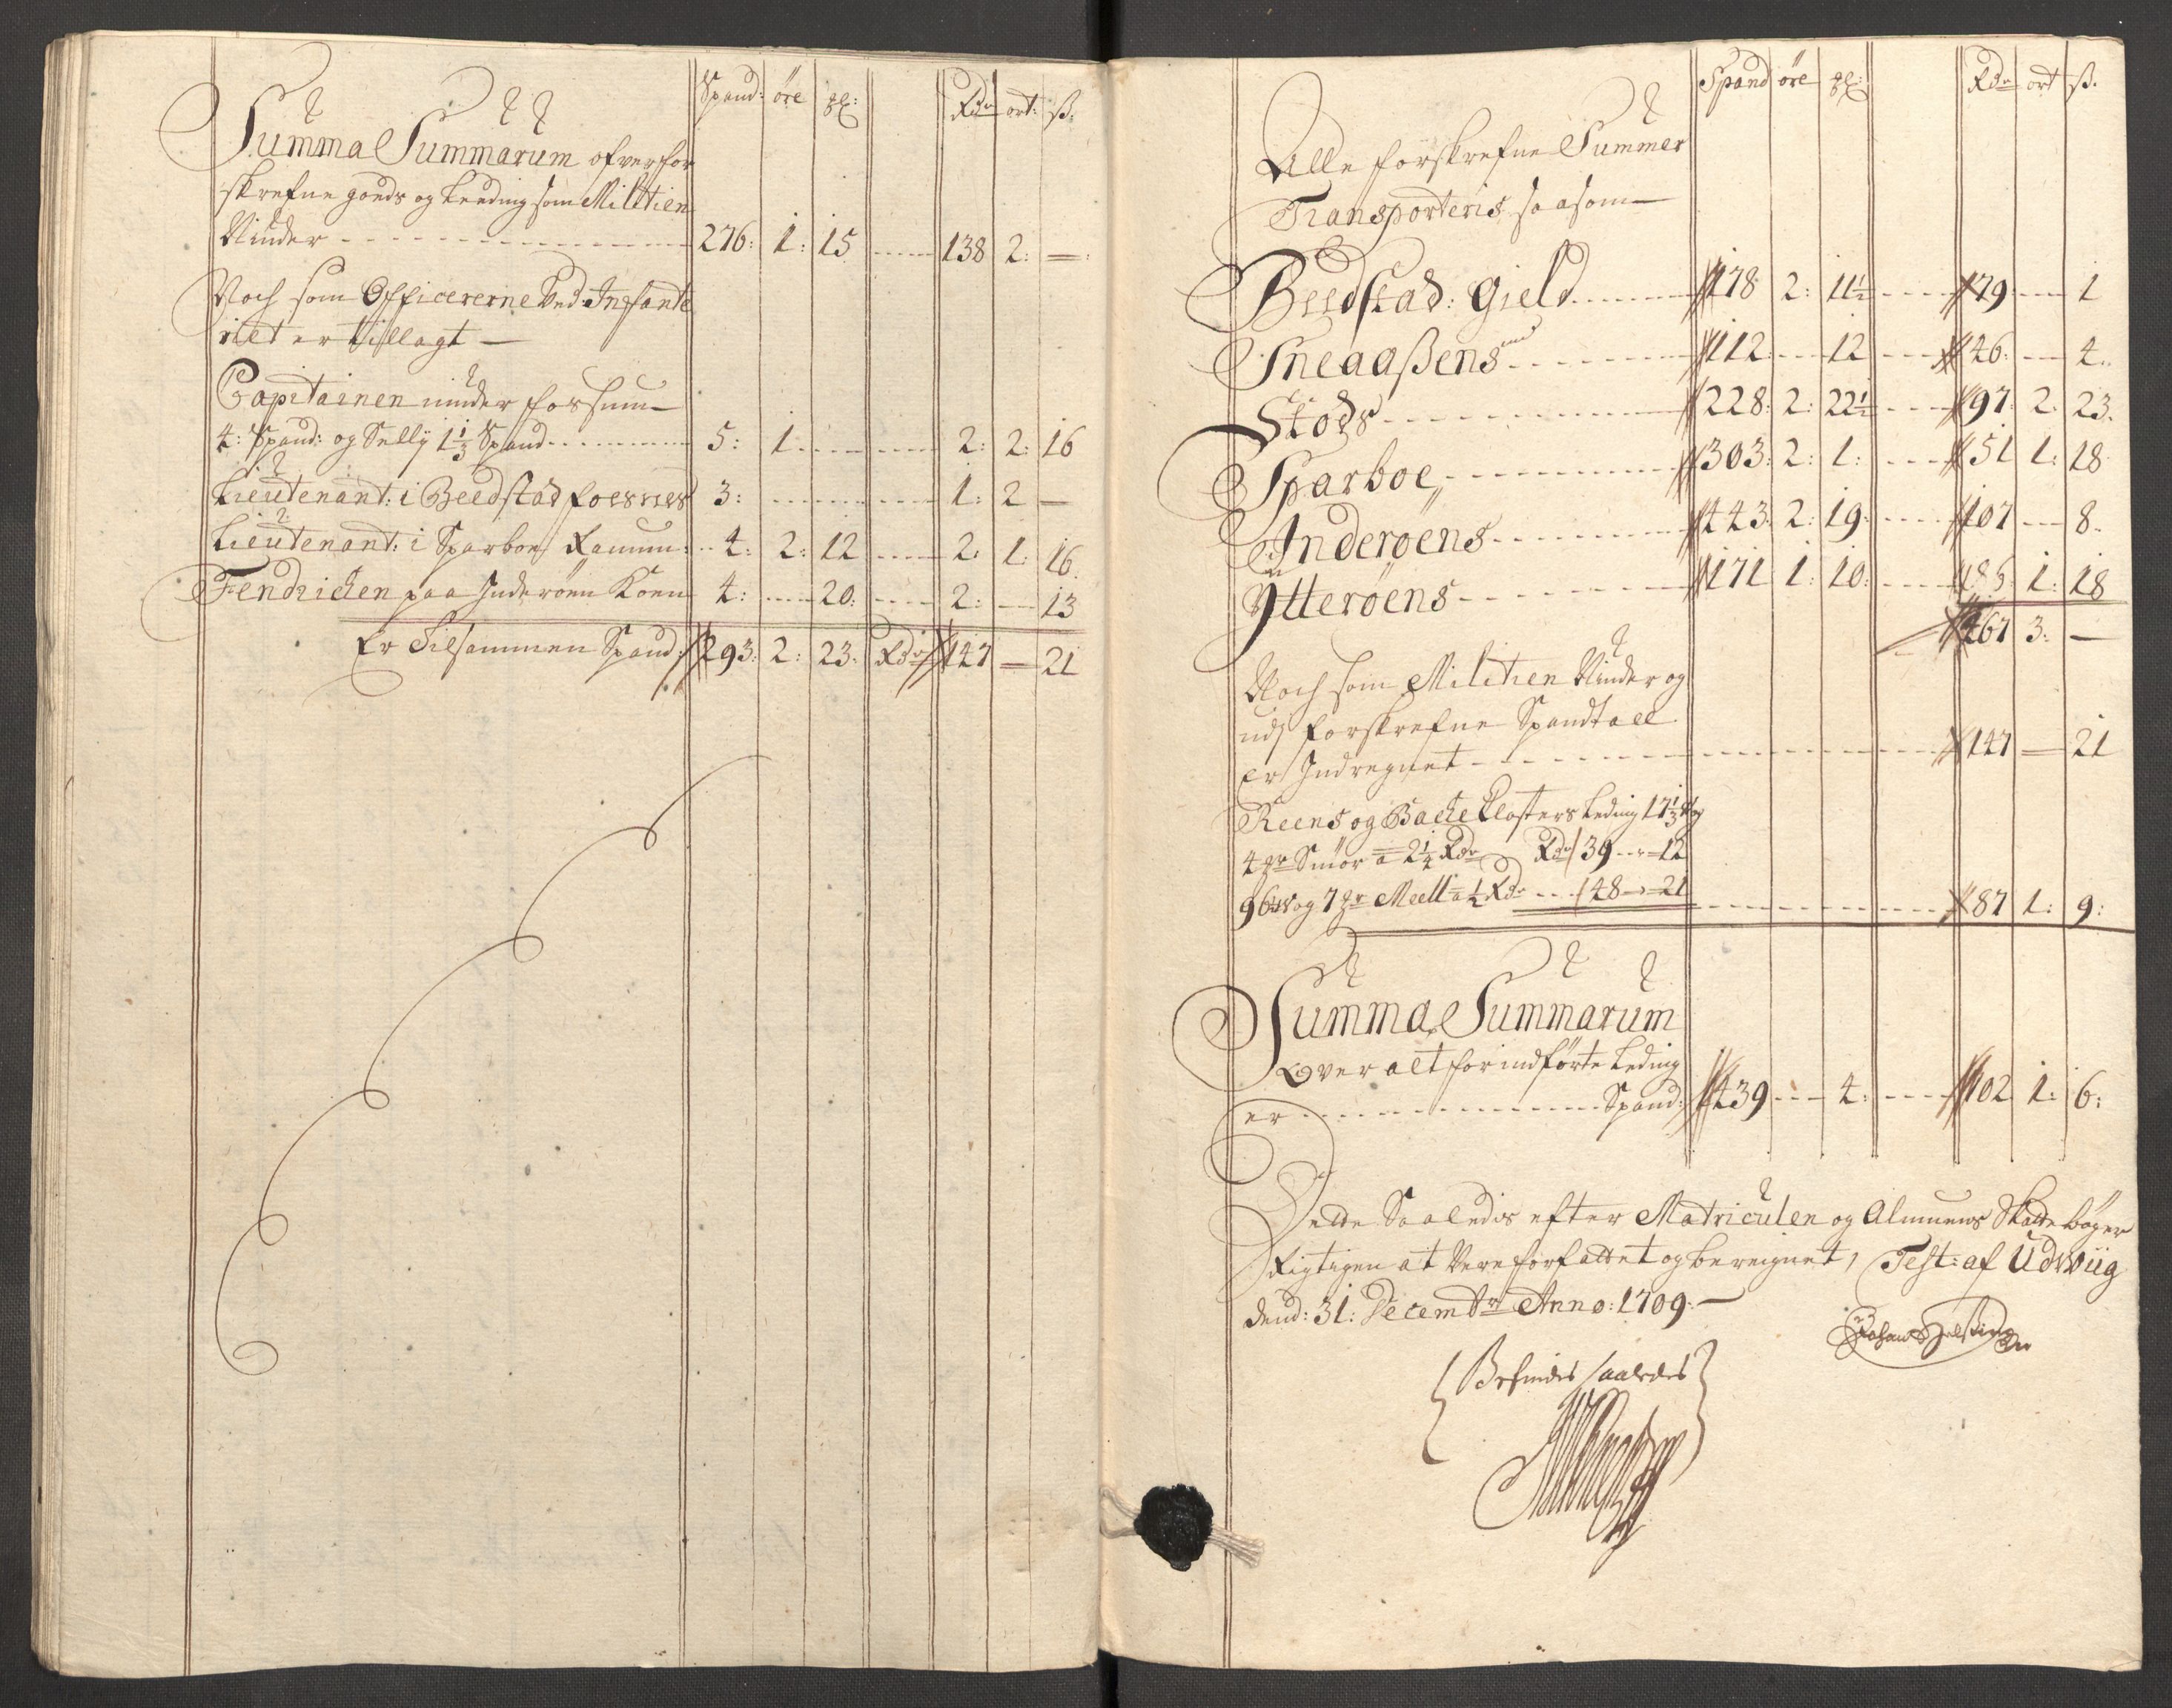 Spand: öre gl: Rdr ort: ß:
Summa Summarum ofver for
skrefne goeds og Leeding som Militien
Niuder 276: 1: 15 138 2: —
Noch som Officererne Ved Infante
riet er tillagt —
Capitainen niuder for sum
4: Spand: og Selly 1 1/3 Spand 5: 1 2: 2: 16
Lieutenant: i Beedstad foesnes 3: 1: 2 —
Lieutenant: i Sparboe Ramum: 4: 2: 12 2: 1: 16
Fendrichen paa Inderøen Koen 4: 20: 2: 13
Er Tilsammen Spand: 293: 2: 23: Rdr 147 — 21
Spand öre gl: Rdr ort ß.
Alle forskrefne Summer
Transporteris saasom
Beedstad: Gield 178 2: 11½ 79 1
Sneaaßens 112 12 46 4
Stods 228: 2: 22½ 97: 2: 23
Sparboe 303: 2: 1: 51 1: 18
Inderøens 443: 2: 19 107 8
Ytterøens 171 1: 10: 85 1: 18
467 3: —
Noch som Militien Niuder og
udj forskrefne Spandtall
er Indregnet 147 — 21
Reens og Bache Closters Leding 17 1/3 og
4 Smör a 2¼ Rdr Rdr 39 12
96 og 7 Meell a ½ Rdr 48 21 87 1: 9:
Summa Summarum
Over alt for indførte Leding
er Spand: 1439 4: 702 1: 6:
Dette Saaledis efter Matriculen og Almuens Skatte bøger
Rigtigen at Vere forfattet og bereignet, Test: af Udvviig
dend: 31: Decembr Anno: 1709 —
Befindes saaledes